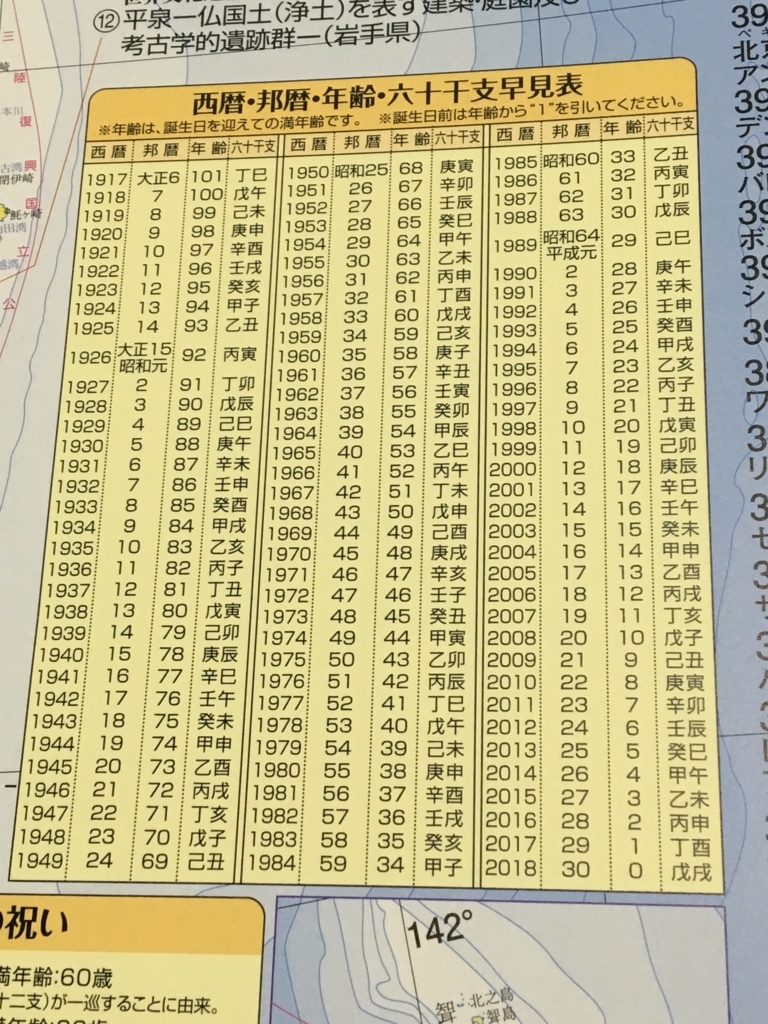 ⑫平泉一仏国土(浄土)を表す建築・庭園及び
考古学的遺跡群一(岩手県)
西暦・邦暦・年齢・六十干支早見表
※年齢は、誕生日を迎えての満年齢です。 ※誕生日前は年齢から"1"を引いてください。
西暦 邦暦 年齢 六十干支
1917 大正6 101 丁巳
1918 7 100 戊午
1919 8 99 己未
1920 9 98 庚申
1921 10 97 辛酉
1922 11 96 壬戌
1923 12 95 癸亥
1924 13 94 甲子
1925 14 93 乙丑
1926 大正15 昭和元 92 丙寅
1927 2 91 丁卯
1928 3 90 戊辰
1929 4 89 己巳
1930 5 88 庚午
1931 6 87 辛未
1932 7 86 壬申
1933 8 85 癸酉
1934 9 84 甲戌
1935 10 83 乙亥
1936 11 82 丙子
1937 12 81 丁丑
1938 13 80 戊寅
1939 14 79 己卯
1940 15 78 庚辰
1941 16 77 辛巳
1942 17 76 壬午
1943 18 75 癸未
1944 19 74 甲申
1945 20 73 乙酉
1946 21 72 丙戌
1947 22 71 丁亥
1948 23 70 戊子
1949 24 69 己丑
西暦 邦暦 年齢 六十干支
1950 昭和25 68 庚寅
1951 26 67 辛卯
1952 27 66 壬辰
1953 28 65 癸巳
1954 29 64 甲午
1955 30 63 乙未
1956 31 62 丙申
1957 32 61 丁酉
1958 33 60 戊戌
1959 34 59 己亥
1960 35 58 庚子
1961 36 57 辛丑
1962 37 56 壬寅
1963 38 55 癸卯
1964 39 54 甲辰
1965 40 53 乙巳
1966 41 52 丙午
1967 42 51 丁未
1968 43 50 戊申
1969 44 49 己酉
1970 45 48 庚戌
1971 46 47 辛亥
1972 47 46 壬子
1973 48 45 癸丑
1974 49 44 甲寅
1975 50 43 乙卯
1976 51 42 丙辰
1977 52 41 丁巳
1978 53 40 戊午
1979 54 39 己未
1980 55 38 庚申
1981 56 37 辛酉
1982 57 36 壬戌
1983 58 35 癸亥
1984 59 34 甲子
西暦 邦暦 年齢 六十干支
1985 昭和60 33 乙丑
1986 61 32 丙寅
1987 62 31 丁卯
1988 63 30 戊辰
1989 昭和64 平成元 29 己巳
1990 2 28 庚午
1991 3 27 辛未
1992 4 26 壬申
1993 5 25 癸酉
1994 6 24 甲戌
1995 7 23 乙亥
1996 8 22 丙子
1997 9 21 丁丑
1998 10 20 戊寅
1999 11 19 己卯
2000 12 18 庚辰
2001 13 17 辛巳
2002 14 16 壬午
2003 15 15 癸未
2004 16 14 甲申
2005 17 13 乙酉
2006 18 12 丙戌
2007 19 11 丁亥
2008 20 10 戊子
2009 21 9 己丑
2010 22 8 庚寅
2011 23 7 辛卯
2012 24 6 壬辰
2013 25 5 癸巳
2014 26 4 甲午
2015 27 3 乙未
2016 28 2 丙申
2017 29 1 丁酉
2018 30 0 戊戌
の祝い
満年齢:60歳
十二支)が一巡することに由来。
142°
北之島
聟島
聟
三陸復興国立公